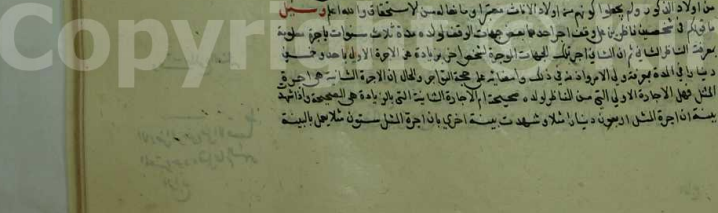 Copyri
من اولاد الذكور ولم يجعلوا كونهم من اولاد الاناث معتبرا ومانعا لهم من الاستحقاق والله اعلم وسئل
ما قولكم في شخصين ناظرين على وقف اجر احدهما بعض جهات الوقف لولده مدة ثلاث سنوات باجرة معلومة
بمعرفة الناظر الثاني ثم ان الثاني اجر تلك الجهات الموجرة لشخص اخر بزيادة هي الاجرة الاولى باحد وخمسين
دينارا في المدة بعد في ذلك على حجة التواجر والحال ان الاجرة الثانية هي اجرة
المثل فهل الاجارة الاولى التي من الناظر لولده صحيحة ام الاجارة الثانية التي بالزيادة هي الصحيحة واذا شهدت
بينة ان اجرة المثل اربعون دينارا مثلا وشهدت بينة اخرى بان اجرة المثل ستون مثلا يعمل بالبينة